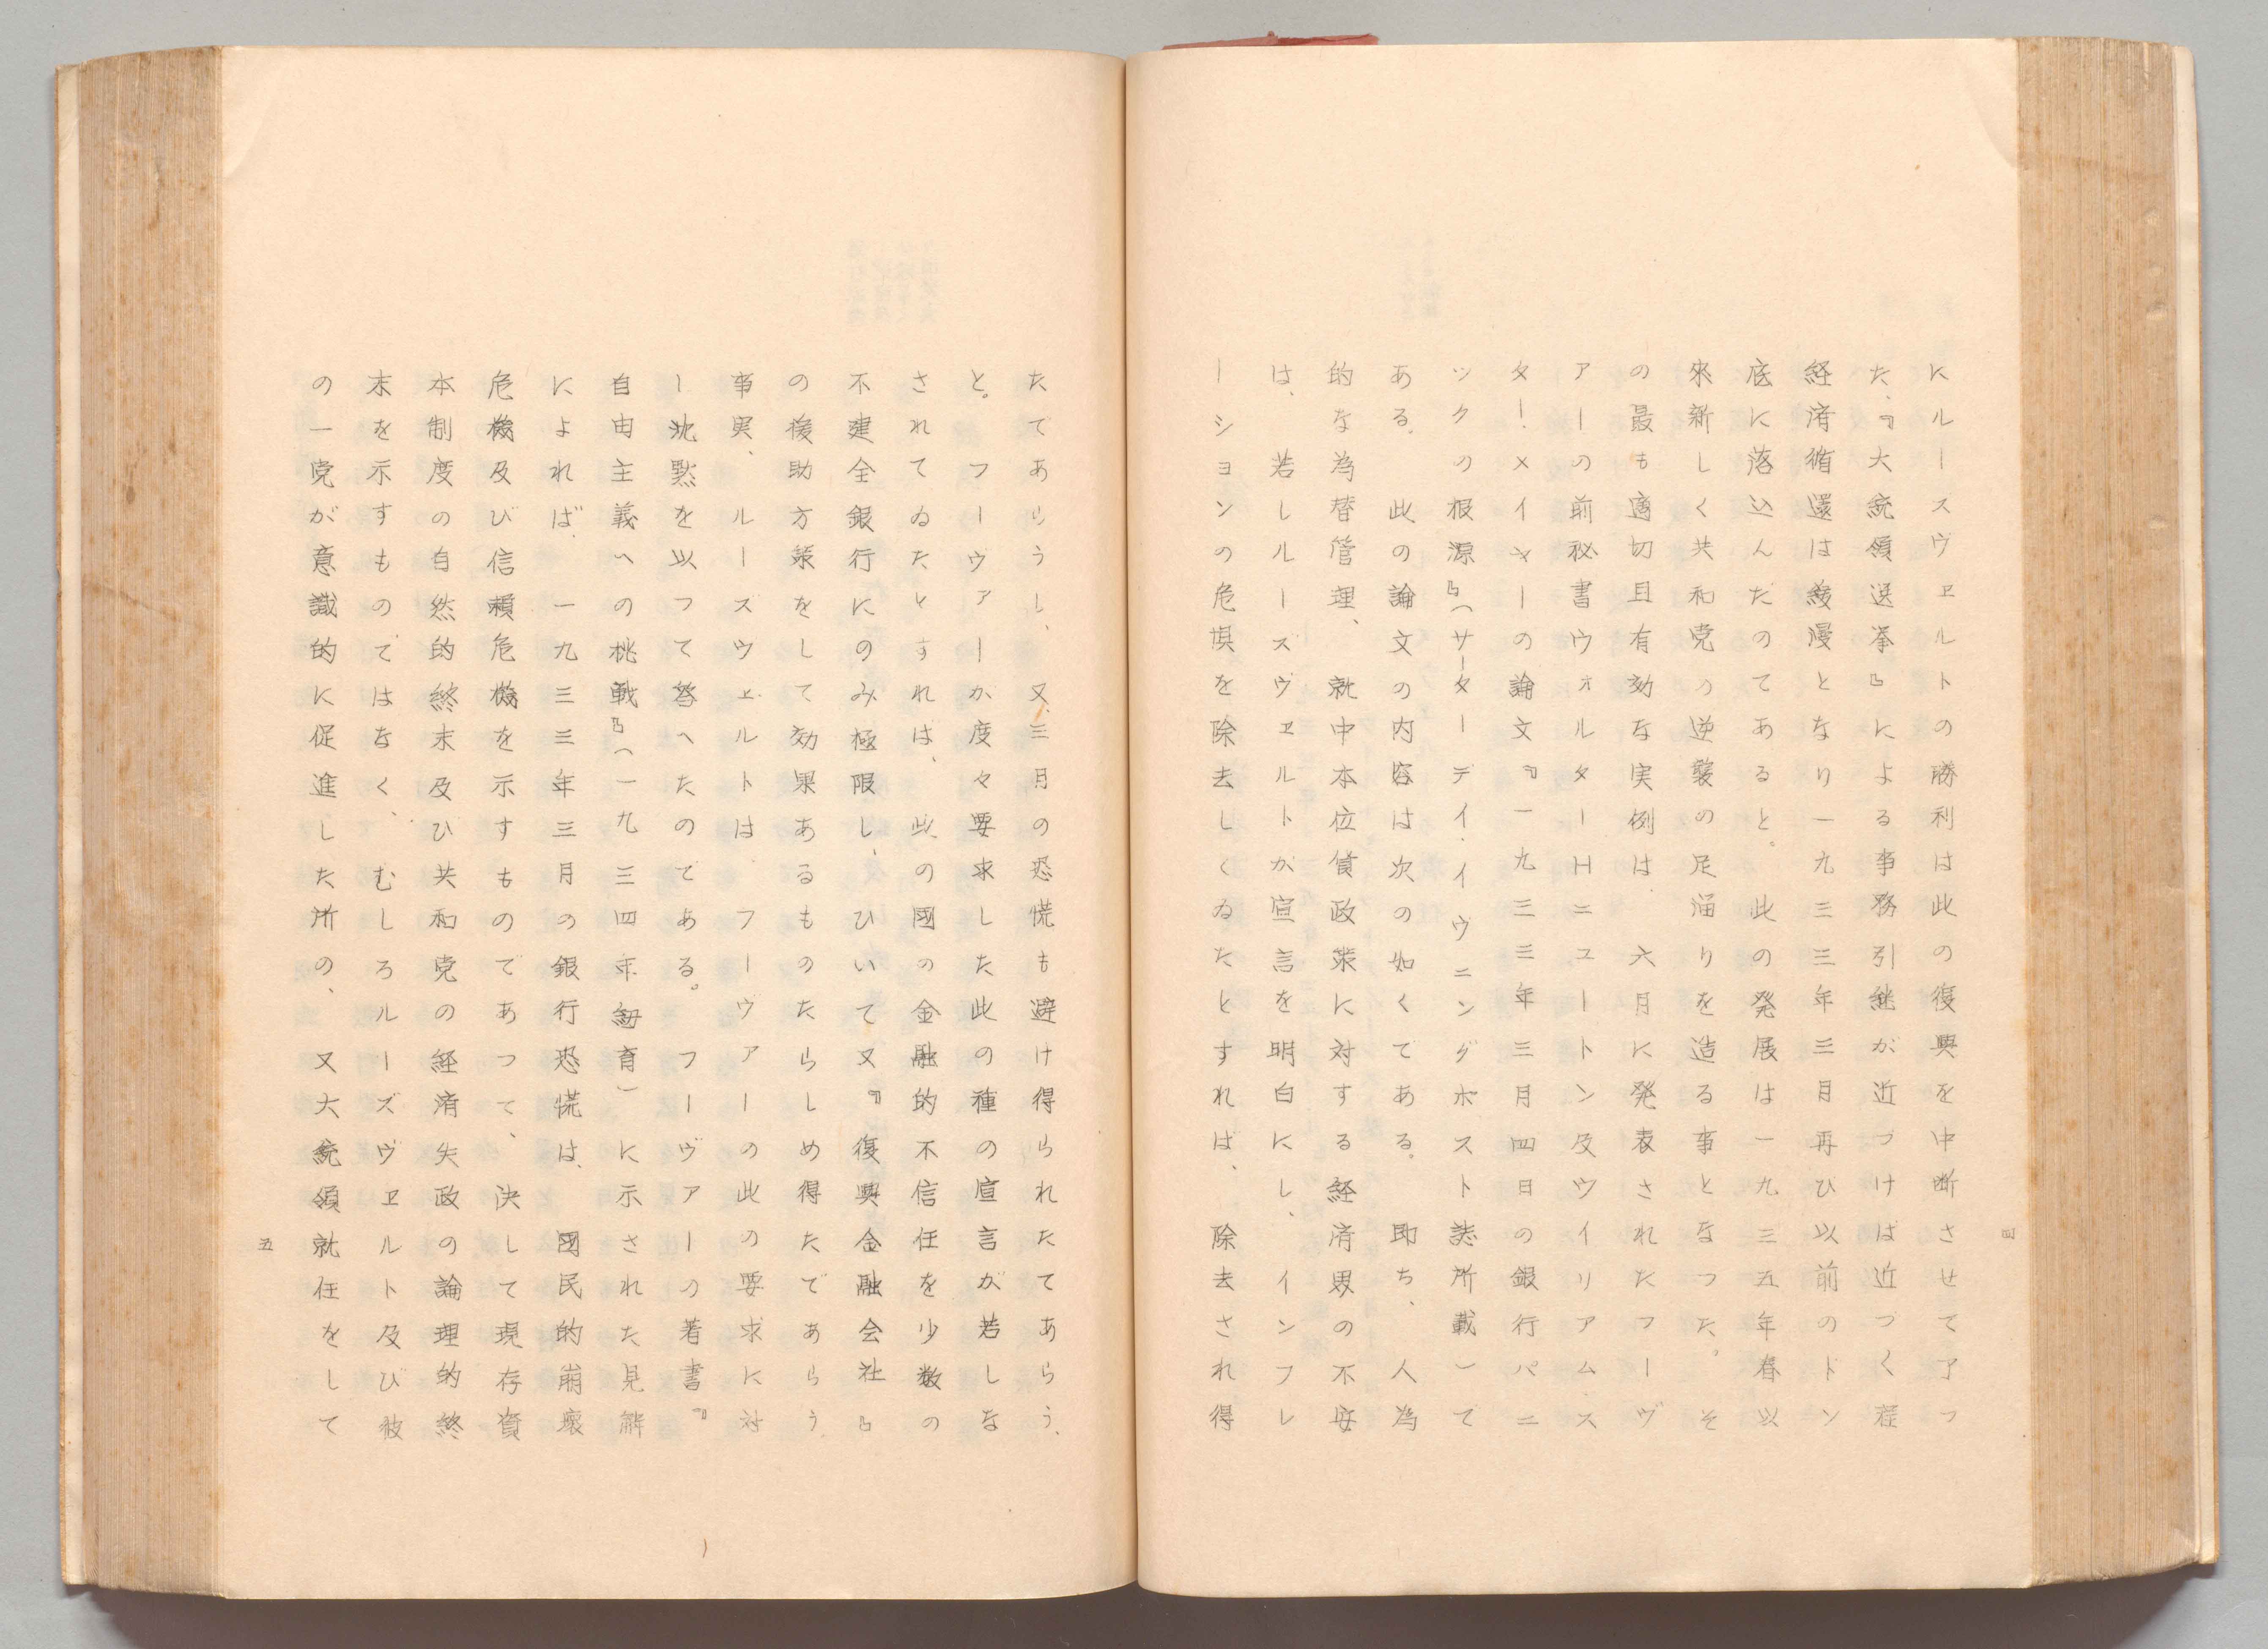 にルースヴェルトの勝利は此の復興を中断させて了つ
た、『大統領選挙』による事務引継が近づけば近づく程
経済循還は緩漫となり一九三三年三月再び以前のドン
底に落込んだのてあると。　此の発展は一九三五年春以
來新しく共和党の逆襲の足溜りを造る事となつた。そ
の最も適切且有効な実例は、六月に発表されたフーヴ
アーの前秘書ウォルターHニュートン及ウイリアムス
ター！メイヤーの論文『一九三三年三月四日の銀行パニ
ックの根源』（サーターデイ．イヴニングポスト誌所載）て
ある。　此の論文の内容は次の如くてある。　即ち、人為
的な為替管理、就中本位貨政策に対する経済界の不安
は、若しルーズヴェルトが宣言を明白にし、インフレ
ーションの危惧を除去しくゐたとすれば、除去され得
四
たてあらうし、又、三月の恐慌も避け得られたてあらう、
と。　フーヴァーか度々要求した此の種の宣言が若しな
されてゐたとすれは、此の國の金融的不信任を少数の
不建全銀行にのみ極限し、ひいて又『復興金融会社』
の援助方策をして効果あるものたらしめ得たであらう、
事実、ルースヴェルトは、フーヴアーの此の要求に対
ー沈黙を以つて答へたのてある。　フーヴアーの著書『
自由主義への桃戦』（一九三四年紐育）に示された見解
によれば、一九三三年三月の銀行恐慌は、國民的崩壊
危機及び信頼危機を示すものであつて、決して現存資
本制度の自然的終末及ひ共和党の経済失政の論理的終
末を示すものてはなく、むしろルーズヴェルト及び彼
の一党が意識的に促進した所の、又大統領就任をして
五